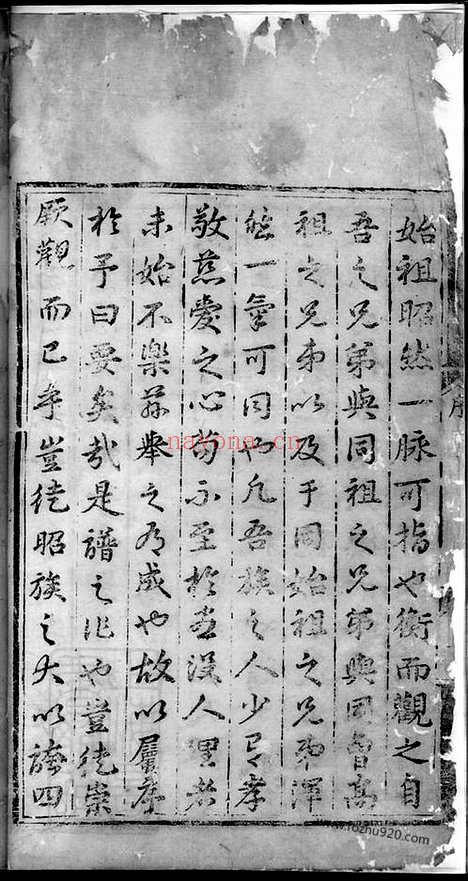 始祖昭然一脉可指也衡而觀之自
吾之兄弟與同祖之兄弟與同曾高
祖之兄弟以及于同始祖之兄弟渾
然一氣可同也凡吾族之人少有孝
敬慈愛之心苟不至於無漠人里者
未始不樂茲舉之有成也故以屬序
於予曰要矣哉是譜之作也豈徒崇
厥觀而已乎豈徒昭族之大以誇四
序
nayona.cn
www.fozhu920.com